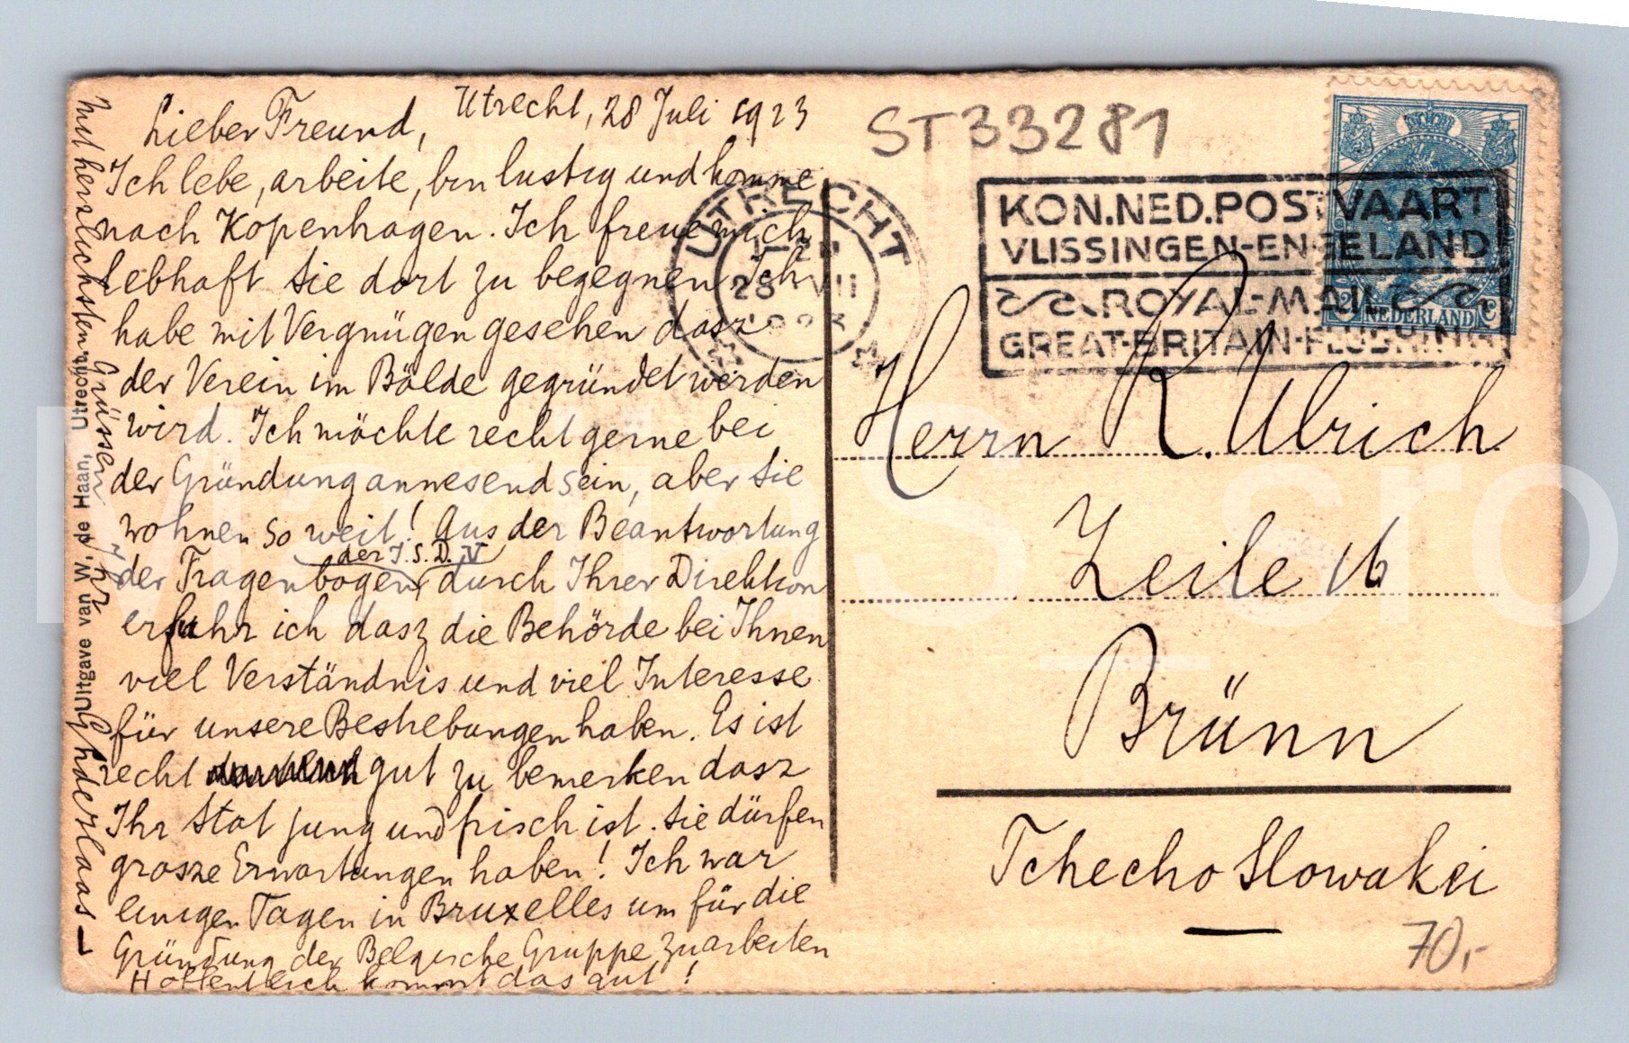 Utrecht, 28 Juli 1923
Lieber Freund,
Ich lebe, arbeite, bin lustig und komme
nach Kopenhagen. Ich freue mich
lebhaft Sie dort zu begegnen. Ich
habe mit Vergnügen gesehen dasz
der Verein im Bälde gegründet werden
wird. Ich möchte recht gerne bei
der Gründung anwesend sein, aber Sie
wohnen so weit! Aus der Beantwortung
der I.S.D.V
der Fragenbogen durch Ihrer Direktion
erfuhr ich dasz die Behörde bei Ihnen
viel Verständnis und viel Interesse
für unsere Bestrebungen haben. Es ist
recht gut zu bemerken dasz
Ihr Stat jung und frisch ist. Sie dürfen
grosze Erwartungen haben! Ich war
einigen Tagen in Bruxelles um für die
Gründung der Belgische Gruppe zu arbeiten
Hoffentlich kommt das gut!
Mit herzlichsten Grüssen Ihr
Uitgave van W. de Haan, Utrecht.
ST33281
UTRECHT
28 VII
1923
KON.NED.POSTVAART
VLISSINGEN-ENGELAND
ROYAL-MAIL
GREAT-BRITAIN-FLUSHING
NEDERLAND
Herrn R. Ulrich
Zeile 16
Brünn
Tchecho Slowakei
70,-